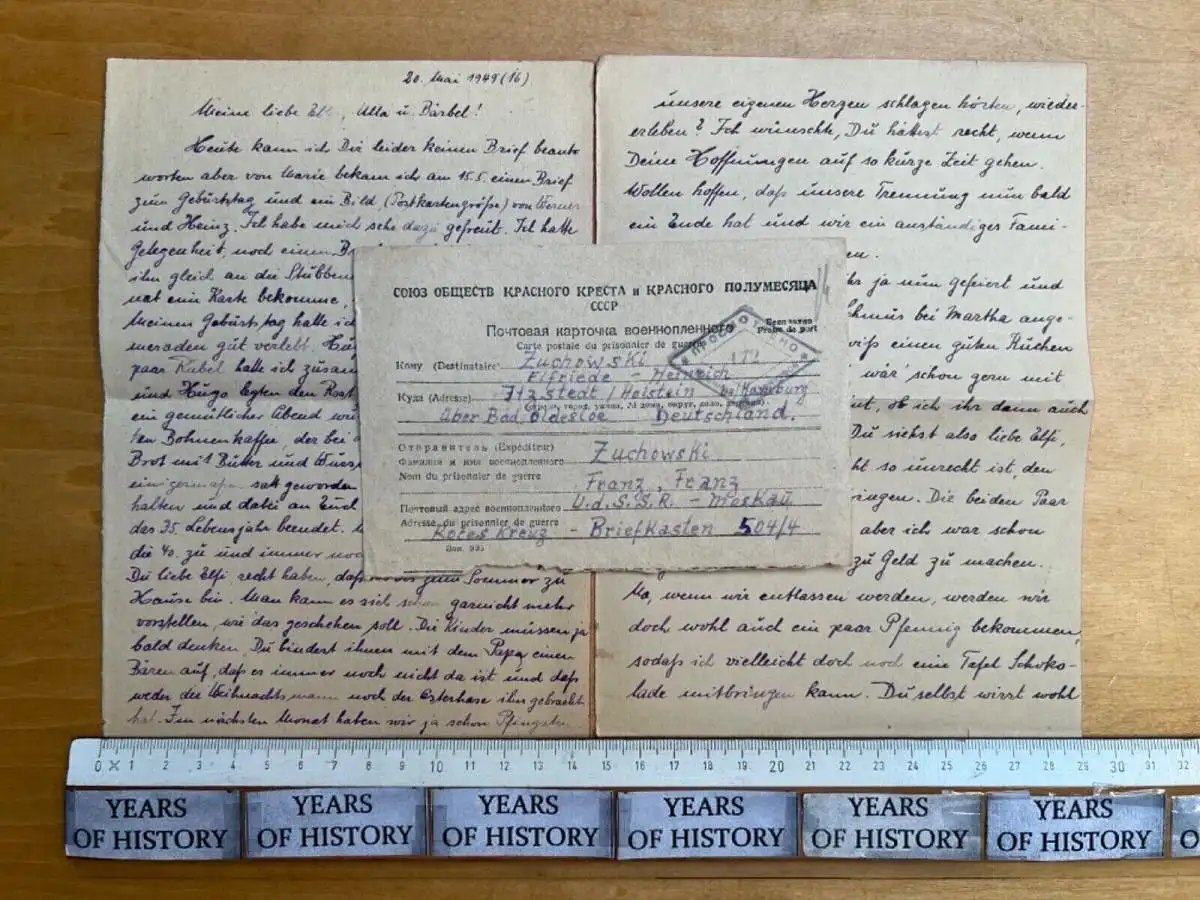 20. Mai 1949 (16)
Meine liebe Ulla u. Bärbel!
Heute kann ich Dir leider keinen Brief beant-
worten aber von Marie bekam ich am 15.5. einen Brief
zum Geburtstag und ein Bild (Postkartengröße) von Werner
und Heinz. Ich habe mich sehr dazu gefreut. Ich hatte
Gelegenheit, noch einen
ihn gleich an die
nat ein Karte bekomme,
Meinen Geburtstag hatte ich
meraden gut verlebt.
paar Rubel hatte ich
und Hugo legten den Rest
ein gemütlicher Abend
ten Bohnenkaffee, der bei
Brot mit Butter und
einigermaßen satt geworden
halten und dabei an Euch
das 35. Lebensjahr beendet.
die 40. zu und immer noch
Du liebe Elfi, recht haben, daß zum Sommer zu
Hause bin. Man kann es sich schon garnicht mehr
vorstellen, wie das geschehen soll. Die Kinder müssen ja
bald denken, Du bindest ihnen mit dem Papa einen
Bären auf, daß es immer noch nicht da ist und daß
weder der Weihnachtsmann noch der Osterhase ihn gebracht
hat. Im nächsten Monat haben wir ja schon Pfingsten
unsere eigenen Herzen schlagen hörten, wieder-
erleben? Ich wünschte, Du hättest recht, wenn
Deine Hoffnungen auf so kurze Zeit gehen.
Wollen hoffen, daß unsere Trennung nun bald
ein Ende hat und wir ein anständiges Fami-
en.
ja nun gefeiert und
bei Martha ange-
einen guten Kuchen
wär' schon gern mit
ob ich ihr dann auch
Du siehst also liebe Elfi,
so unrecht ist, den
ingen. Die beiden Paar
aber ich war schon
zu Geld zu machen.
Na, wenn wir entlassen werden, werden wir
doch wohl auch ein paar Pfennig bekommen,
sodaß ich vielleicht doch noch eine Tafel Schoko-
lade mitbringen kann. Du selbst wirst wohl
СОЮЗ ОБЩЕСТВ КРАСНОГО КРЕСТА и КРАСНОГО ПОЛУМЕСЯЦА
СССР
Почтовая карточка военнопленного
Бесплатно
Carte postale du prisonnier de guerre
Franc de port
ПРОСМОТРЕНО
172
Кому (Destinataire) Zuchowski
Elfriede - Heinrich
Куда (Adresse) Itzstedt / Holstein bg/Hamburg
(Страна, город, улица, № дома, округ, село, деревня)
über Bad Oldesloe Deutschland.
Отправитель (Expéditeur)
Фамилия и имя военнопленного Zuchowski
Nom du prisonnier de guerre
Franz, Franz
Почтовый адрес военнопленного U.d.S.S.R. - Moskau
Adresse du prisonnier de guerre
Rotes Kreuz - Briefkasten 504/4
Зак. 935
0 1 2 3 4 5 6 7 8 9 10 11 12 13 14 15 16 17 18 19 20 21 22 23 24 25 26 27 28 29 30 31 32
YEARS OF HISTORY YEARS OF HISTORY YEARS OF HISTORY YEARS OF HISTORY YEARS OF HISTORY YEARS OF HISTORY